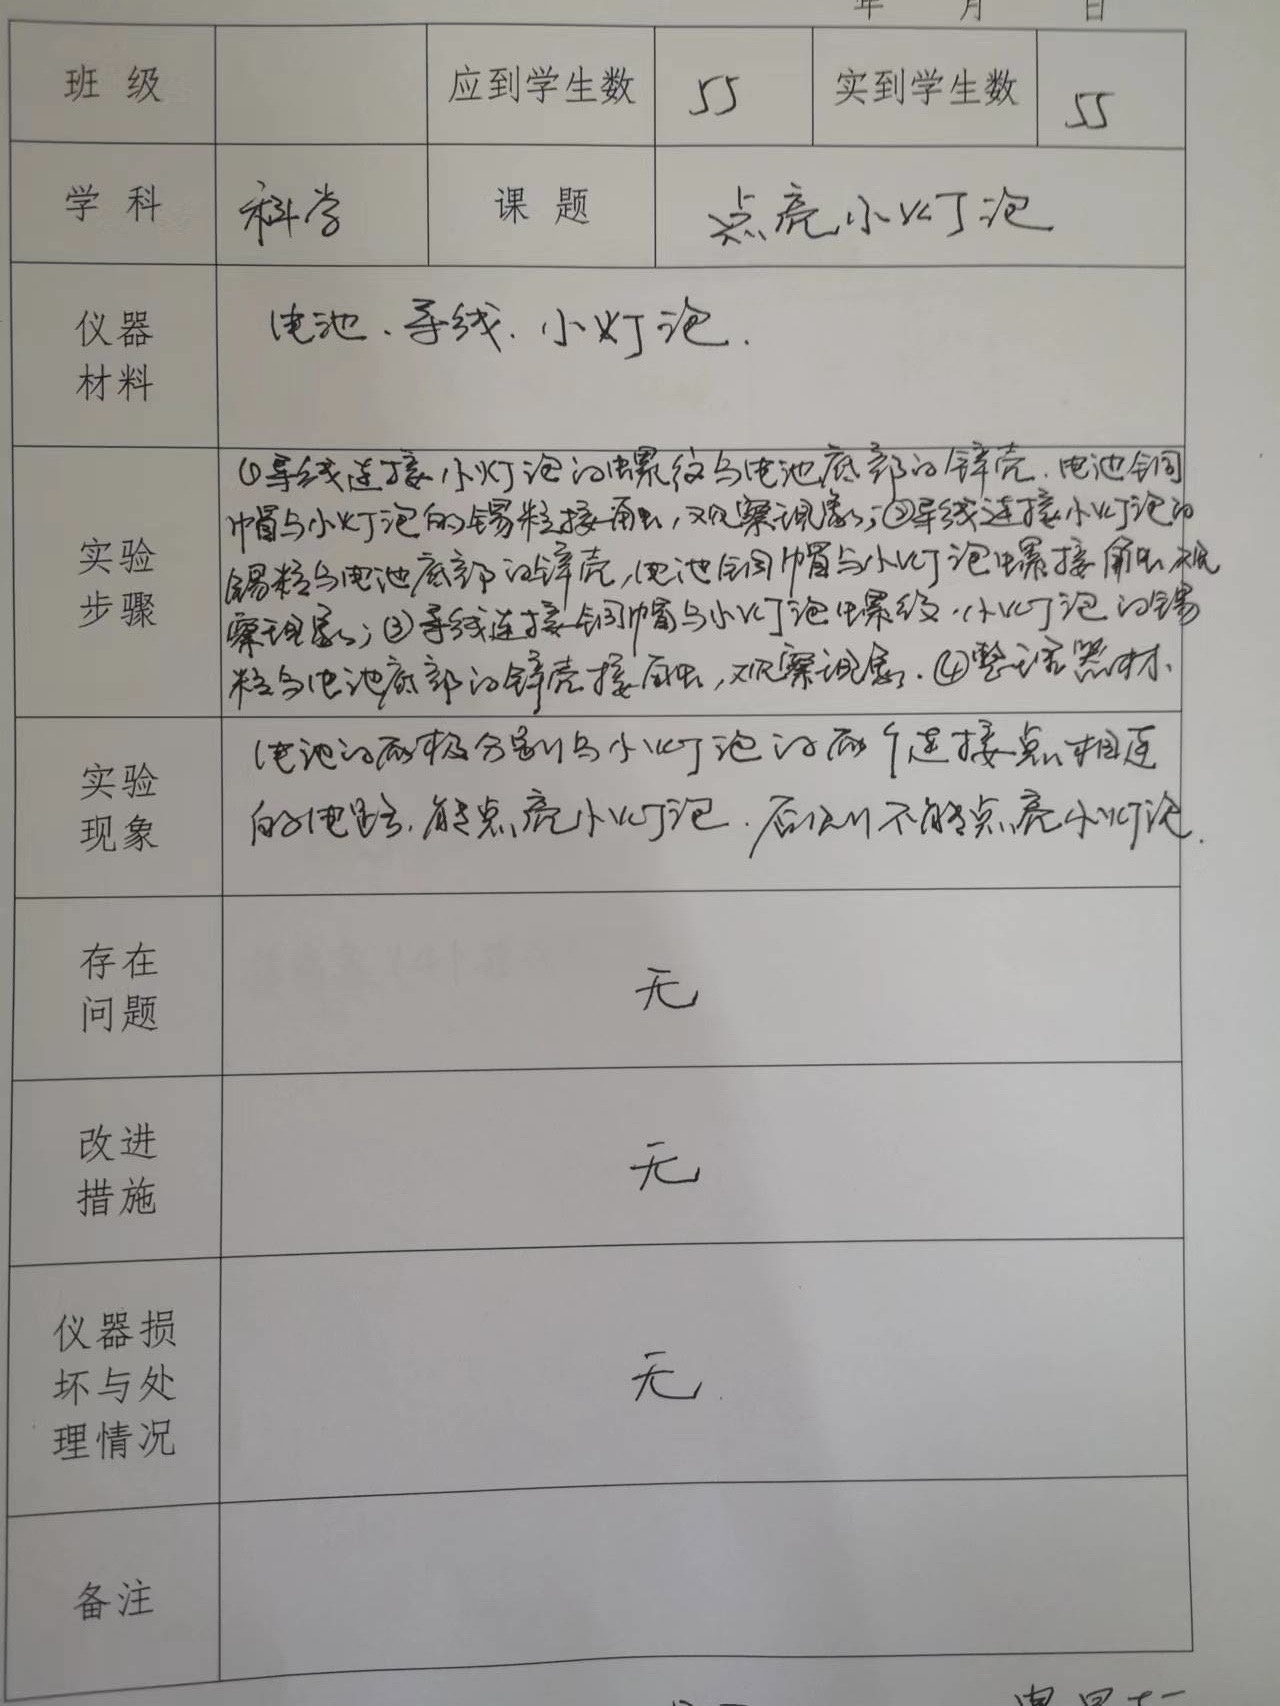 年 月 日
班级 应到学生数 55 实到学生数 55
学科 科学 课题 点亮小灯泡
仪器
材料
电池、导线、小灯泡.
实验
步骤
①导线连接小灯泡的螺纹与电池底部的锌壳.电池铜
帽与小灯泡的锡粒接触,观察现象;②导线连接小灯泡的
锡粒与电池底部的锌壳,电池铜帽与小灯泡螺接触观
察现象;③导线连接铜帽与小灯泡螺纹.小灯泡的锡
粒与电池底部的锌壳接触,观察现象.④整理器材.
实验
现象
电池的两极分别与小灯泡的两个连接点相连
的电路,能点亮小灯泡.否则不能点亮小灯泡.
存在
问题
无
改进
措施
无
仪器损
坏与处
理情况
无
备注